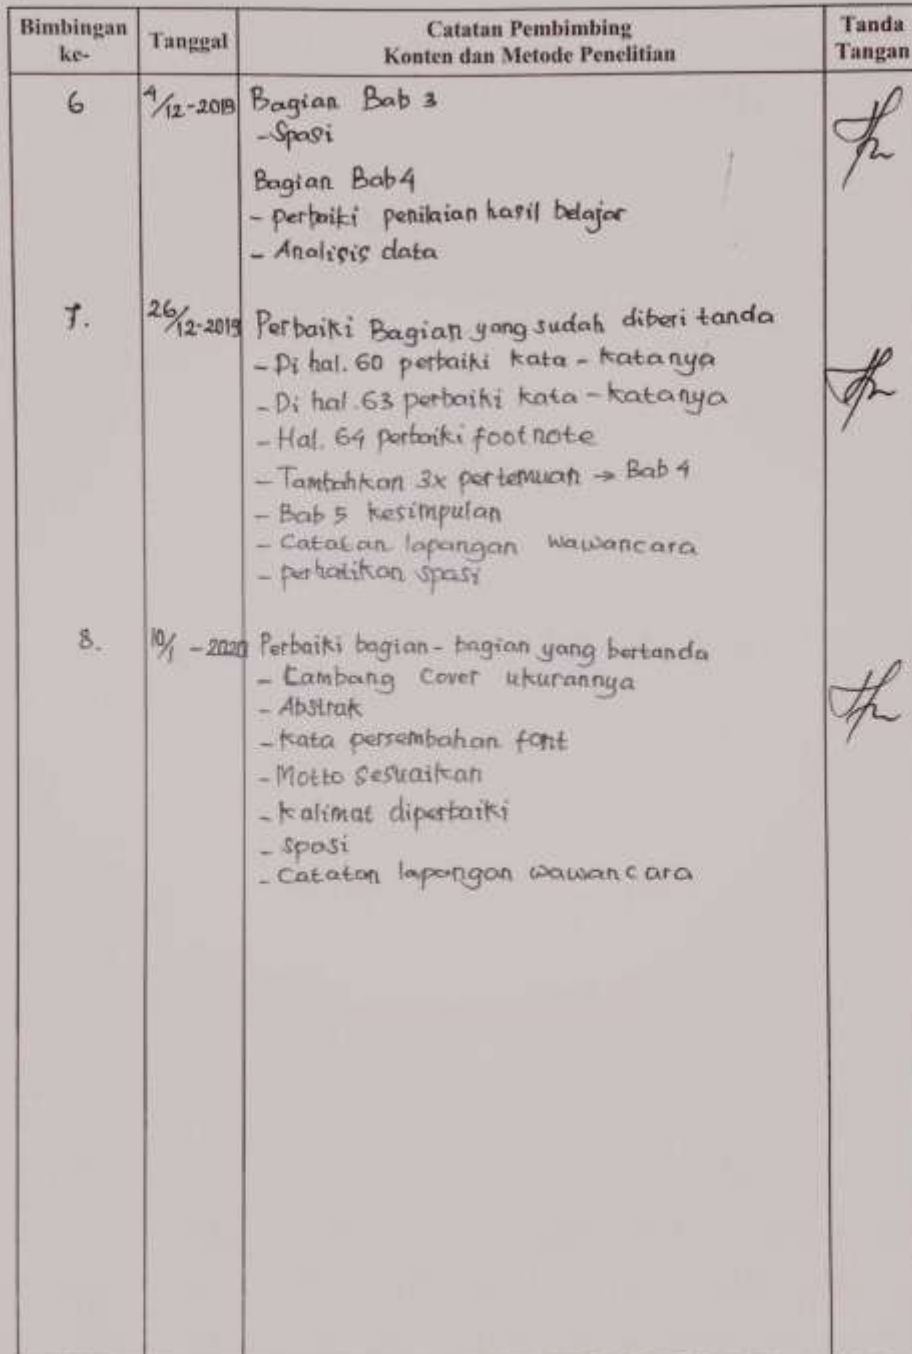 Bimbingan ke- Tanggal Catatan Pembimbing Konten dan Metode Penelitian Tanda Tangan
6 4/12-2019 Bagian Bab 3
-Spasi
Bagian Bab 4
- perbaiki penilaian hasil belajar
- Analisis data
7. 26/12-2019 Perbaiki Bagian yang sudah diberi tanda
- Di hal. 60 perbaiki kata-katanya
- Di hal. 63 perbaiki kata-katanya
- Hal. 64 perbaiki footnote
- Tambahkan 3x pertemuan → Bab 4
- Bab 5 kesimpulan
- Catatan lapangan wawancara
- perhatikan spasi
8. 10/1 - 2020 Perbaiki bagian-bagian yang bertanda
- Lambang Cover ukurannya
- Abstrak
- kata persembahan font
- Motto Sesuaikan
- kalimat diperbaiki
- spasi
- Catatan lapangan wawancara